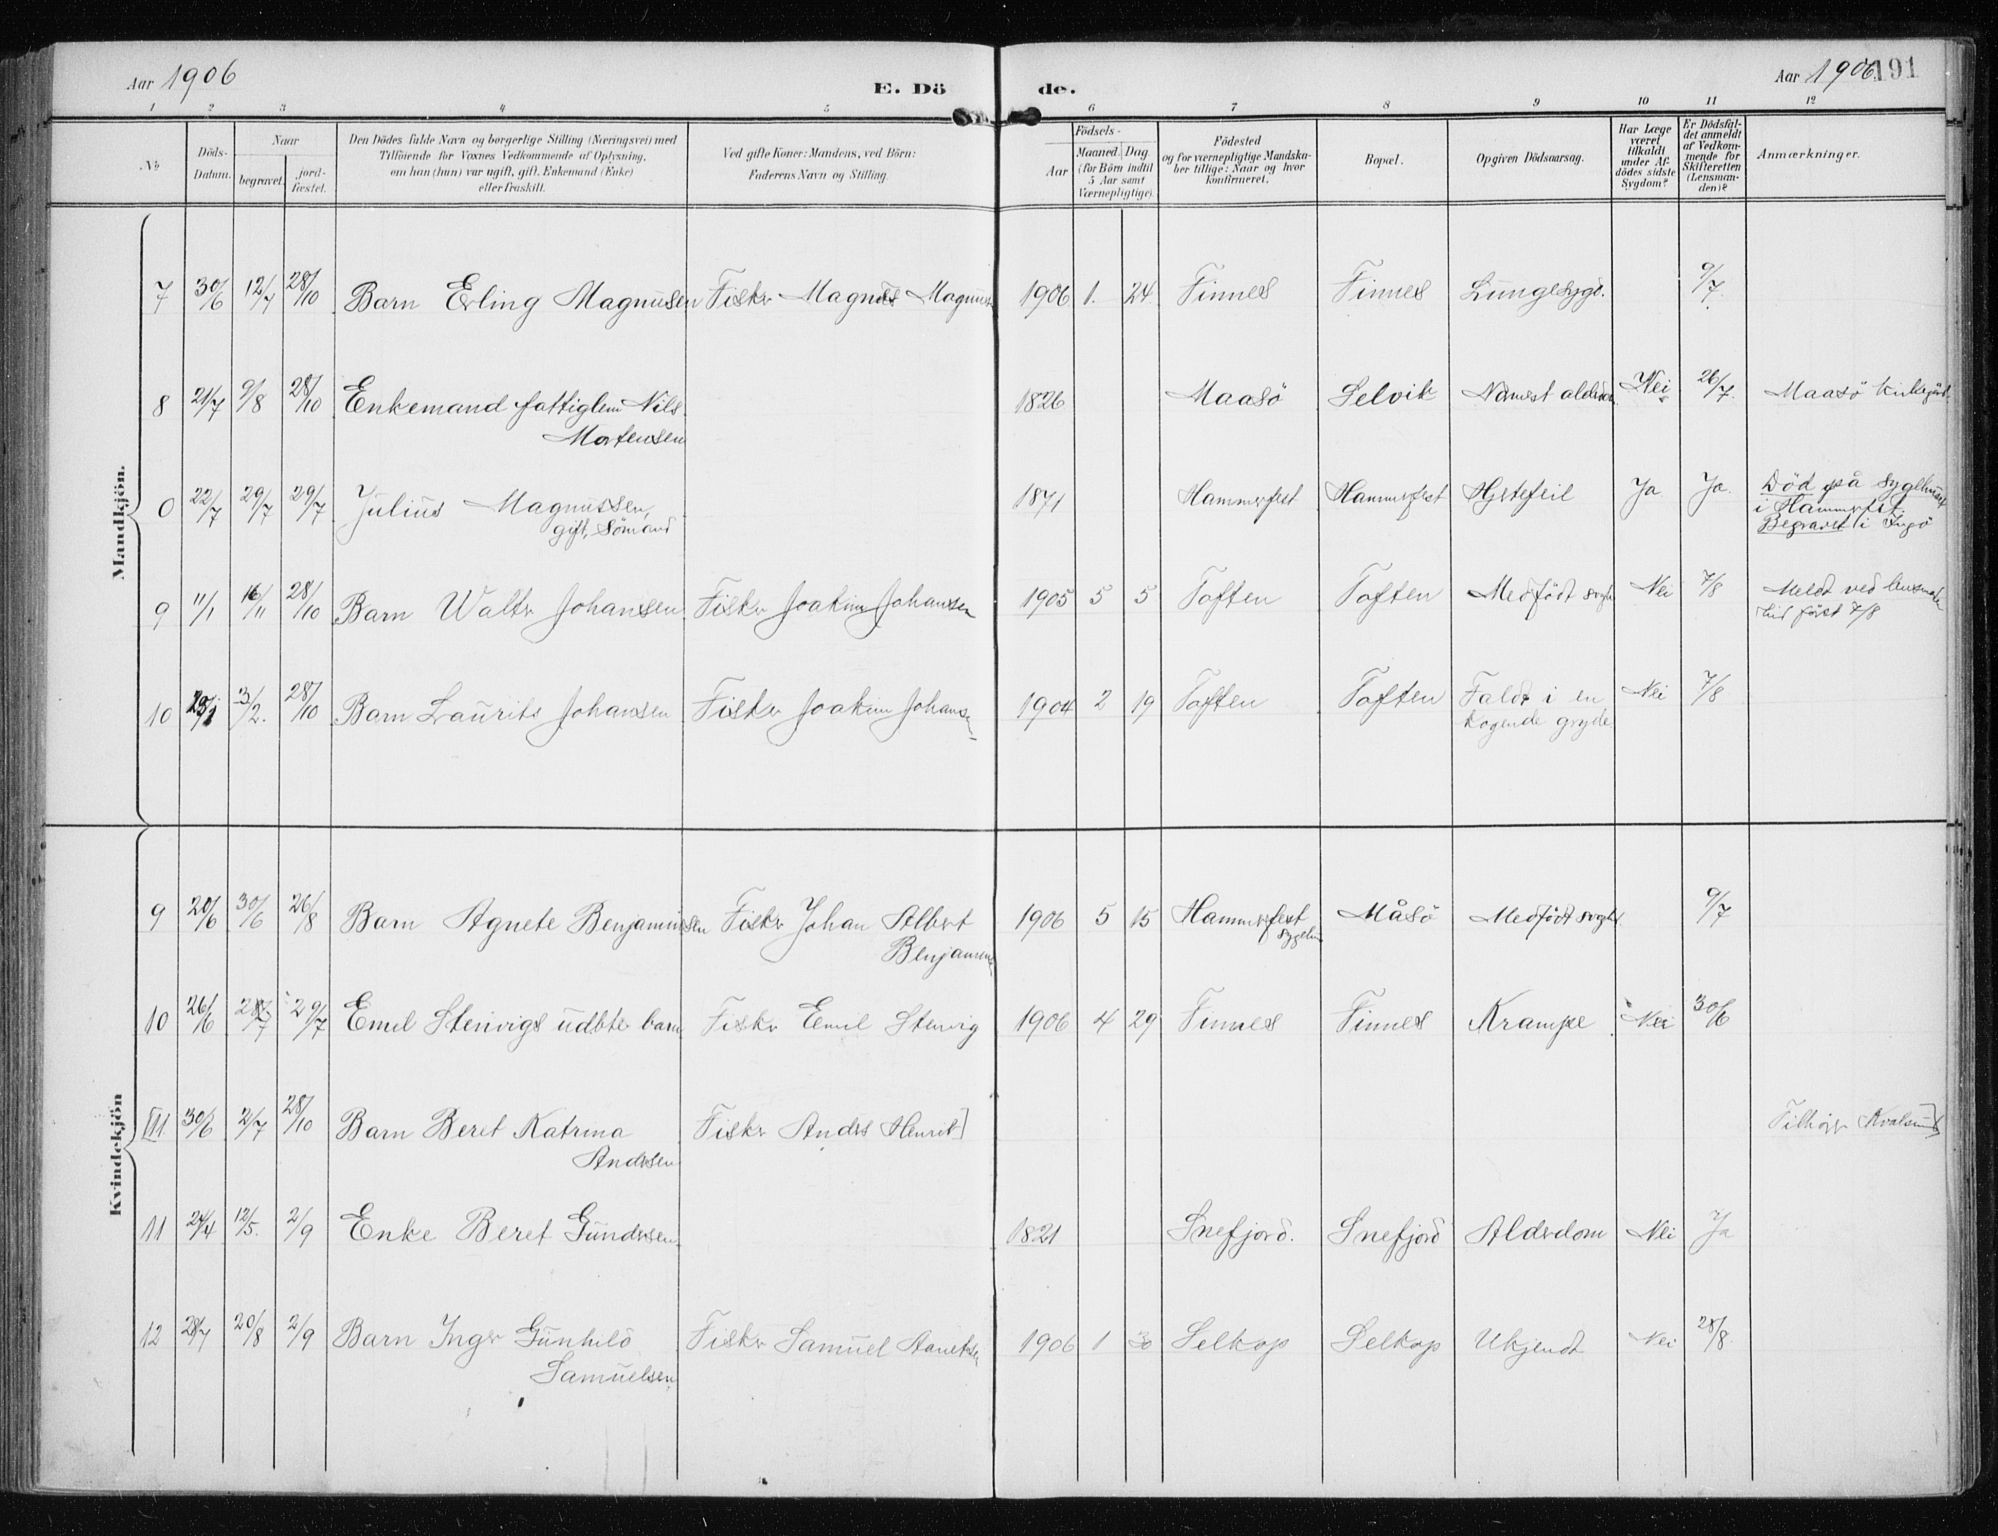 Aar 1906
E. Dö
de.
Aar 1906. 191
1 2 3 4 5 6 7 8 9 10 11 12
No
Döds-
Datum.
Naar
begravet.
jord-
fæstet.
Den Dödes fulde Navn og borgerlige Stilling (Næringsvei) med
Tilföiende for Voxnes Vedkommende af Oplysning,
om han (hun) var ugift, gift, Enkemand (Enke)
eller fraskilt.
Ved gifte Koner: Mandens, ved Börn:
Faderens Navn og Stilling.
Födsels-
Aar
Maaned. Dag
(for Börn indtil
5 Aar samt
Værnepligtige).
Födested
og for værnepligtige Mandska-
ber tillige: Naar og hvor
konfirmeret.
Bopæl.
Opgiven Dödsaarsag.
Har Læge
været
tilkaldt
under Af-
dödes sidste
Sygdom?
Er Dödsfal-
det anmeldt
af Vedkom-
mende for
Skifteretten
(Lensman-
den)?
Anmærkninger.
Mandkjön.
7 30/6 12/7 28/10 Barn Erling Magnusen Fisker Magnus 1906 1. 24 Finnes Finnes Lungesyge. 9/7.
8 21/7 9/8 28/10 Enkemand fattiglem Nils 1826 Maasö Selvik Nei 26/7. Maasö
Mortensen
0 22/7 29/7 29/7 Julius Magnussen, 1871 Hammerfest Hammerfest Hjertefeil Ja Ja. Död på sygehuset
gift, Sömand
i Hammerfest.
Begravet i Ingö
9 11/1 16/11 28/10 Barn Walter Johansen Fisker Joakim Johansen 1905 5 5 Toften Toften Medfödt Nei 7/8 Meldt ved
först 7/8
10 23/1 3/2. 28/10 Barn Laurits Johansen Fisker Joakim Johansen 1904 2 19 Toften Toften Faldt i en Nei 7/8
kogende gryde
Kvindekjön
9 20/6 30/6 26/8 Barn Agnete Benjaminsen Fisker Johan Albert 1906 5 15 Hammerfest Måsö Medfödt 9/7
Benjaminsen
10 26/6 29/7 Emil Stenvigs udöbte barn Fisker Emil Stenvig 1906 4 29 Finnes Finnes Krampe Nei 30/6
[11 30/6 2/7 28/10 Barn Beret Katrina Fisker Anders Kvalsund]
Andersen
11 24/4 12/5. 2/9 Enke Beret Gundersen 1821 Snefjord. Snefjord Alderdom Nei Ja
12 28/7 20/8 2/9 Barn Inger Gunhild Fisker Samuel 1906 1 30 Selkop Selkop Ukjendt Nei 28/8.
Samuelsen